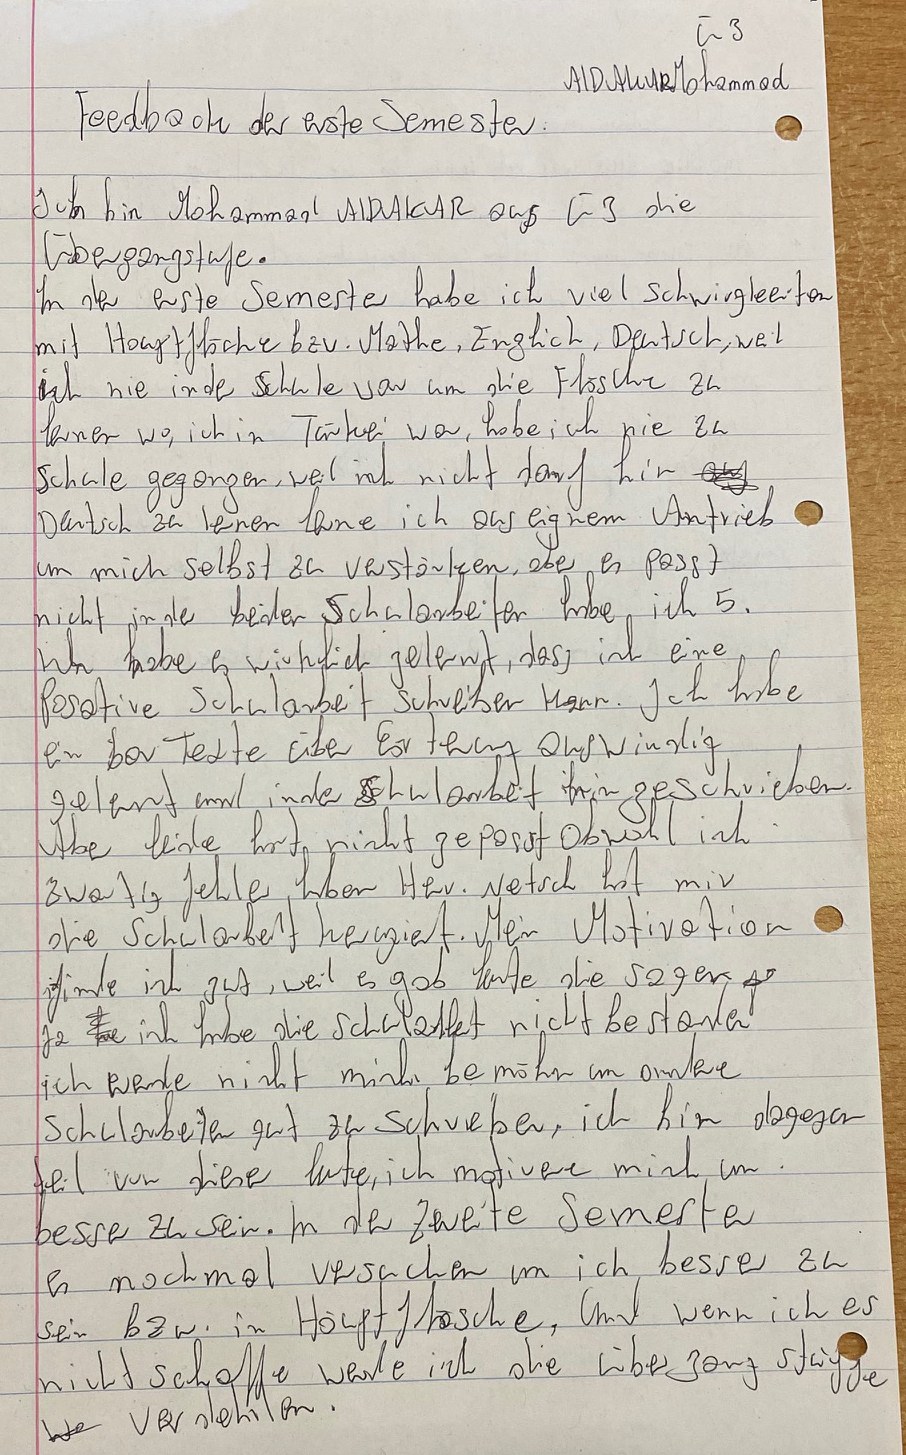 Ü 3
AlDAkAR Mohammad
Feedback der erste Semester.
Ich bin Mohammad AlDAkAR aus Ü3 die
Übergangstufe.
In der erste Semester habe ich viel Schwirgleeiten
mit Hauptfläche bzv. Mathe, Englich, Deutsch, weil
ich nie inde Schule var um die Fläsche zu
lernen wo, ich in Türkei wa, habe ich nie zu
Schule gegangen, weil ich nicht darf hin
Deutsch zu lernen lerne ich aus eignem Antrieb
um mich selbst zu verstärken, abe es passt
nicht in de beiden Schularbeiten habe ich 5.
Ich habe es wirklich gelernt, dass ich eine
Posative Schularbeit schreiben kann. Ich habe
ein bar Texte über Erörterung auswindig
gelernt und inde Schularbeit hingeschrieben.
Abe leide hat nicht gepasst Obwohl ich
zwatzig fehle haben Her. Netsch hat mir
die Schularbeit keregiert. Mein Motivation
finde ich gut, weil es gab leute die sagen
ja ich habe die Schularbeit nicht bestanden
ich werde nicht mich bemöhn um andere
Schularbeiten gut zu schreiben, ich bin dagegen
teil von diese leute, ich motivere mich um
besse zu sein. In de zweite Semeste
es nochmal versuchen um ich besser zu
sein bzw. in Hauptfläsche, Und wenn ich es
nicht schaffe werde ich die übergang stuffe
verdehilen.